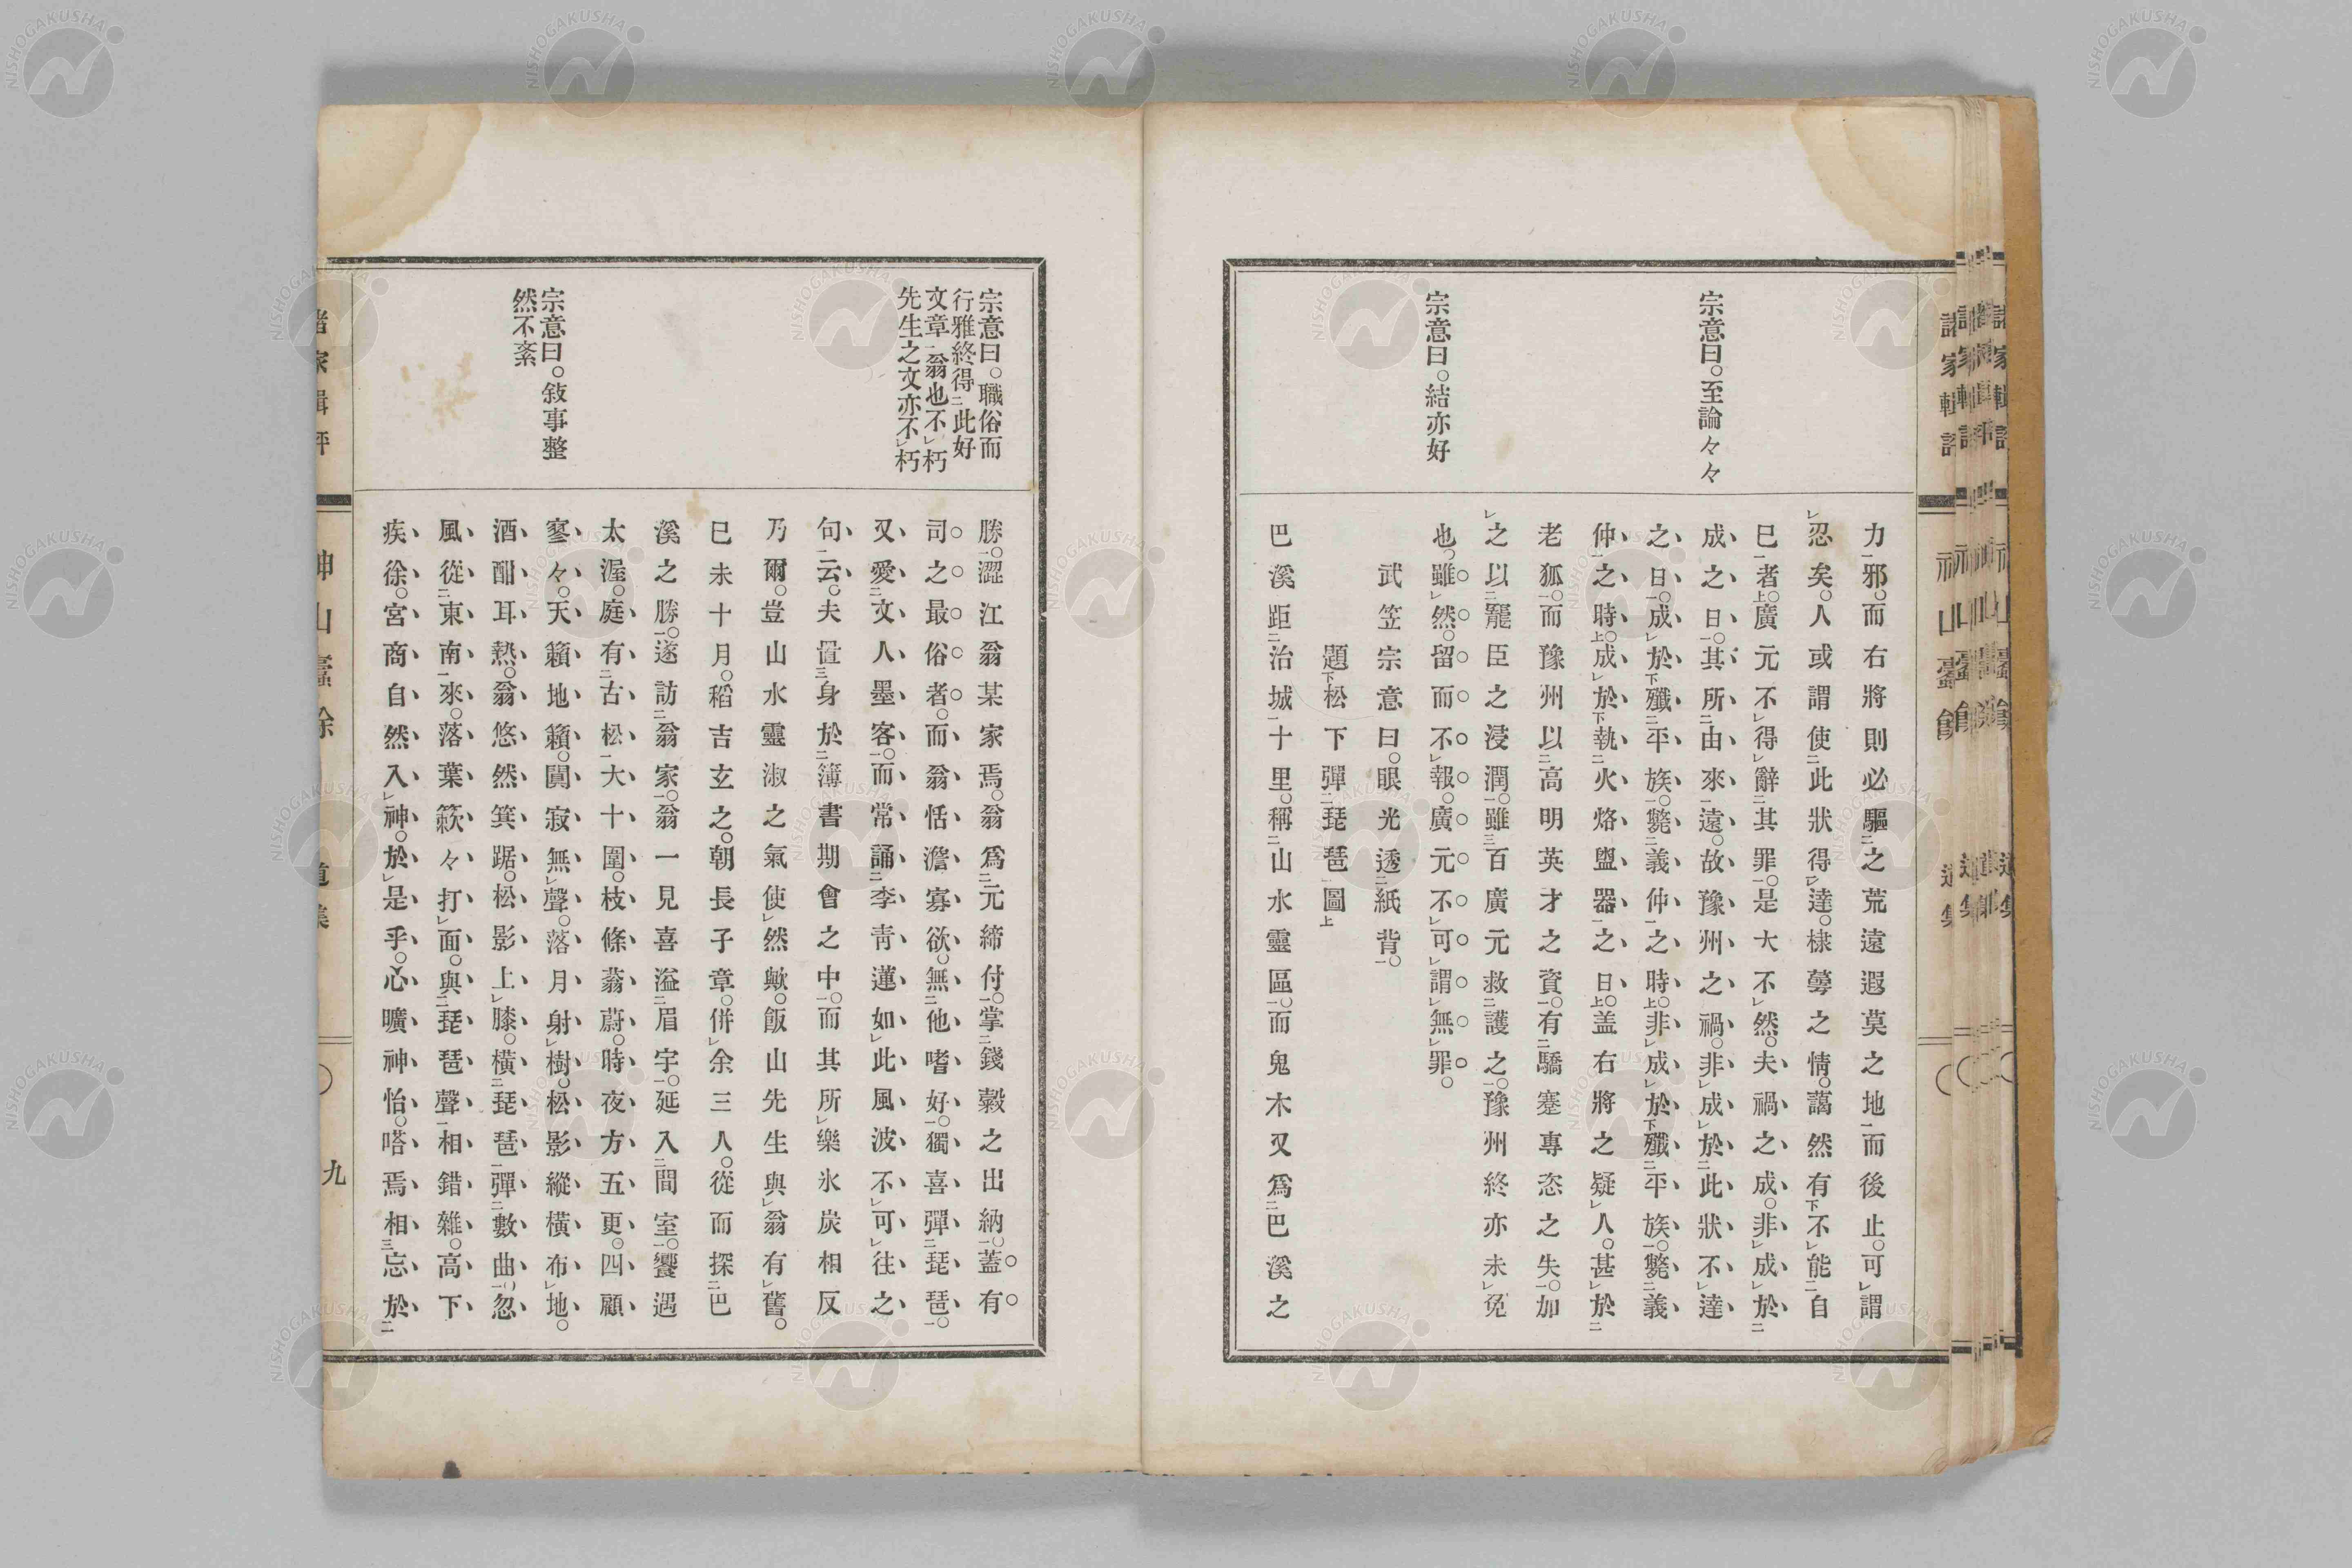 宗意曰。至論々々
宗意曰。結亦好
力邪。而右將則必驅之荒遠遐莫之地而後止。可謂
忍矣。人或謂使此狀得達。棣蕚之情。藹然有不能自
巳者。廣元不得辭其罪。是大不然。夫禍之成。非成於
成之日。其所由來遠。故豫州之禍。非成於此狀不達
之日。成於殲平族。斃義仲之時。非成於殲平族。斃義
仲之時。成於執火烙盥器之日。盖右將之疑人。甚於
老狐。而豫州以高明英才之資。有驕蹇專恣之失。加
之以寵臣之浸潤。雖百廣元救護之。豫州終亦未免
也。雖然。留而不報。廣元不可謂無罪。
武笠宗意曰。眼光透紙背。
題松下彈琵琶圖
巴溪距治城十里。稱山水靈區。而鬼木又爲巴溪之
宗意曰。職俗而
行雅終得此好
文章翁也不朽
先生之文亦不朽
宗意曰。敍事整
然不紊
勝。澀江翁某家焉。翁爲元締付。掌錢穀之出納。蓋有
司之最俗者。而翁恬澹寡欲。無他嗜好。獨喜彈琵琶。
又愛文人墨客。而常誦李靑蓮如此風波不可往之
句云。夫置身於簿書期會之中。而其所樂氷炭相反
乃爾。豈山水靈淑之氣使然歟。飯山先生與翁有舊。
巳未十月。稻吉玄之。朝長子章。併余三人。從而探巴
溪之勝。遂訪翁家。翁一見喜溢眉宇。延入間室。饗遇
太渥。庭有古松大十圍。枝條蓊蔚。時夜方五更。四顧
寥々。天籟地籟。闃寂無聲。落月射樹。松影縱橫布地。
酒酣耳熱。翁悠然箕踞。松影上膝。橫琵琶彈數曲。忽
風從東南來。落葉簌々打面。與琵琶聲相錯雜。高下
疾徐。宮商自然入神。於是乎。心曠神怡。嗒焉相忘於
九